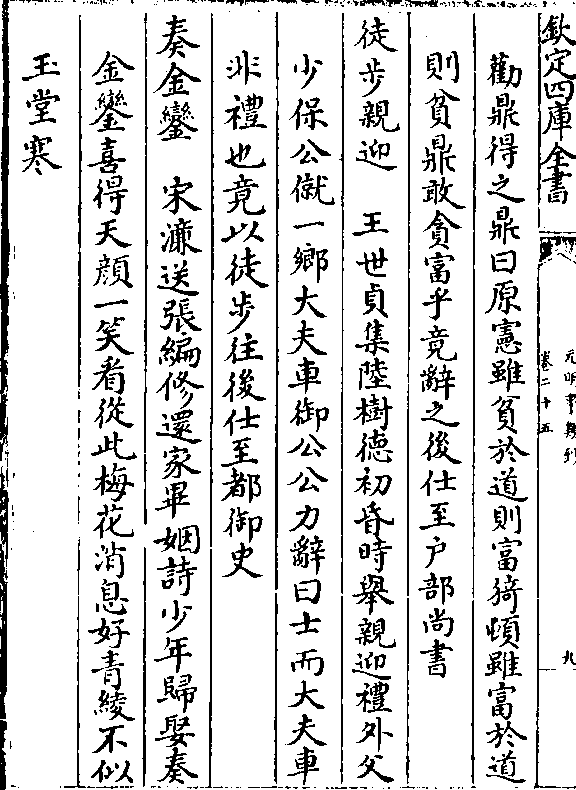 欽定四庫全書
元明事類鈔
卷二十五
九
勸鼎得之鼎曰原憲雖貧於道則富猗頓雖富於道
則貧鼎敢貪富乎竟辭之後仕至户部尚書
徒步親迎　王世貞集陸樹德初昏時舉親迎禮外父
少保公僦一鄉大夫車御公公力辭曰士而大夫車
非禮也竟以徒步往後仕至都御史
奏金鑾　宋濂送張編修還家畢姻詩少年歸娶奏
金鑾喜得天顔一笑看從此梅花消息好青綾不似
玉堂寒